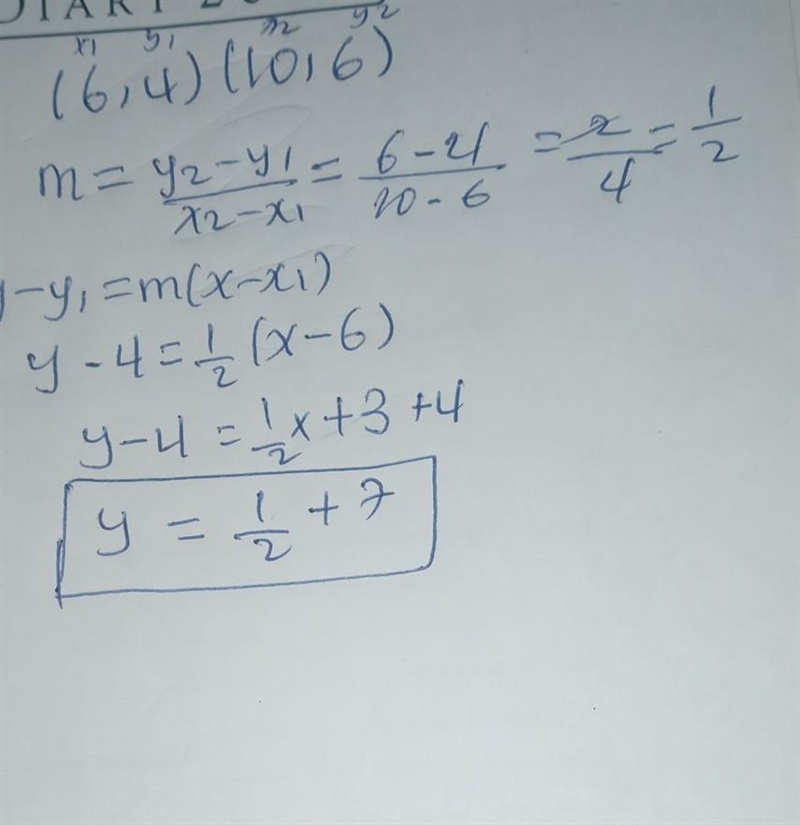 x1 y1 x2 y2
(6,4) (10,6)
m = y2-y1/x2-x1 = 6-4/10-6 = 2/4 = 1/2
y-y1 = m(x-x1)
y-4 = 1/2 (x-6)
y-4 = 1/2 x+3+4
y = 1/2 + 7